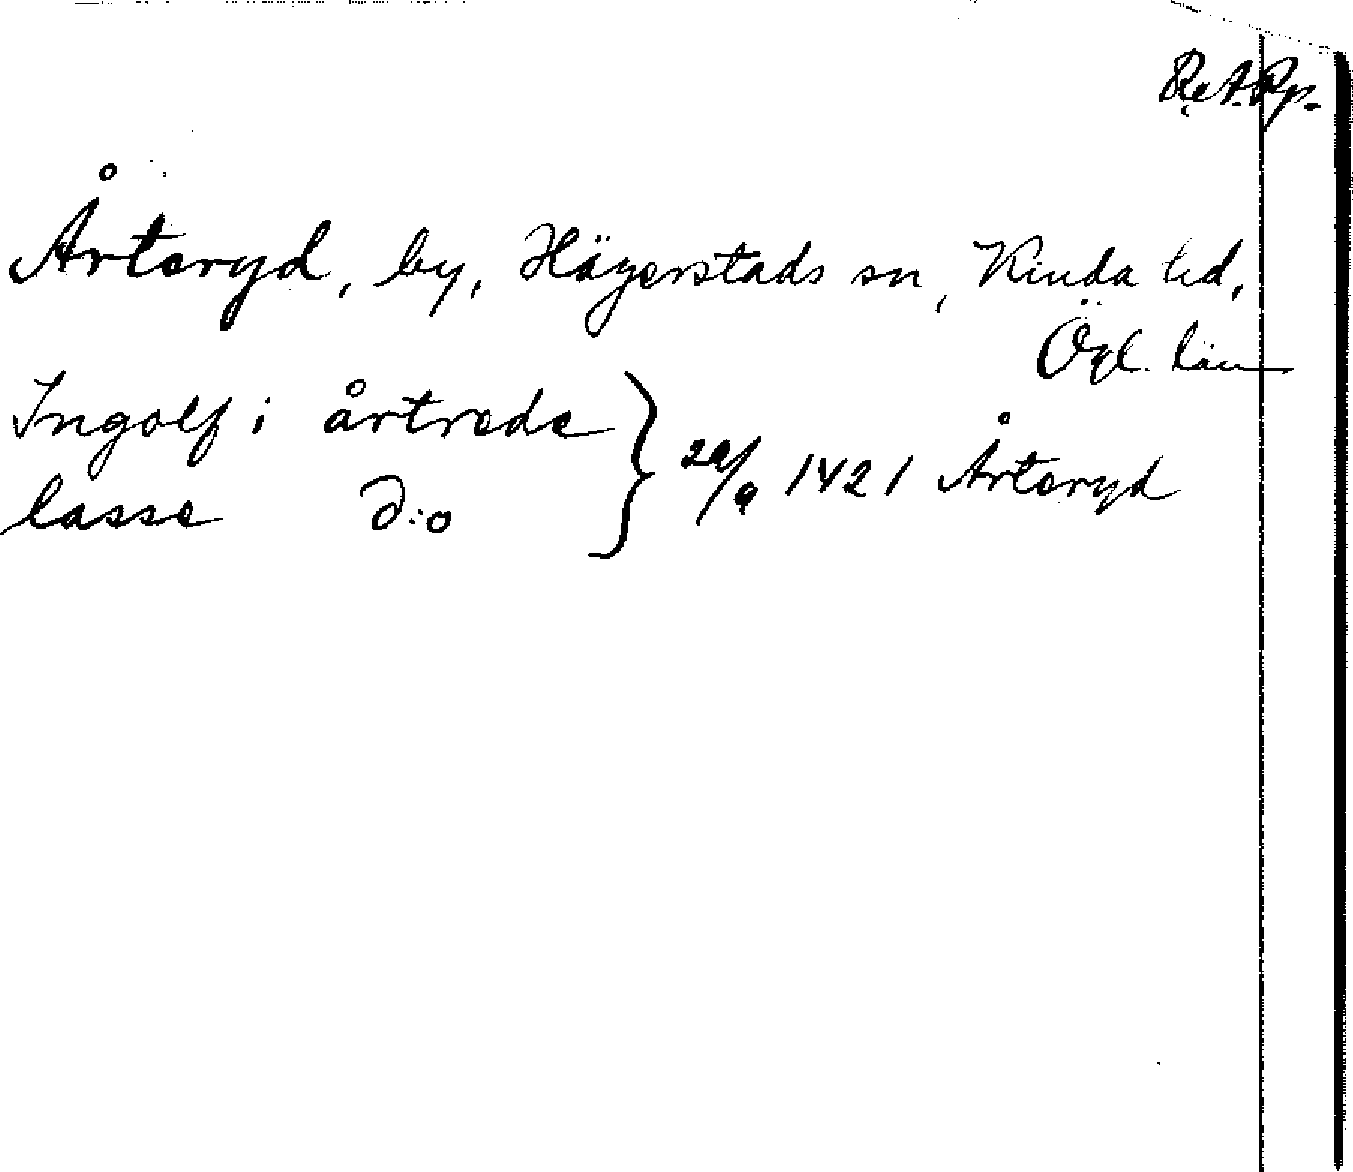 R.A.Pp.
Årteryd, by, Hägerstads sn, Kinda hd,
Ögl. län
Ingolf i årtrede
lasse d:o
29/9 1421 Årteryd